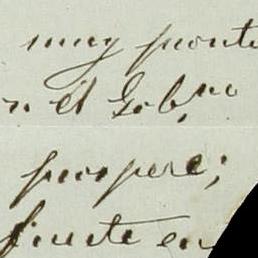 muy pronto
n el Gob.no
prospere;
frente en